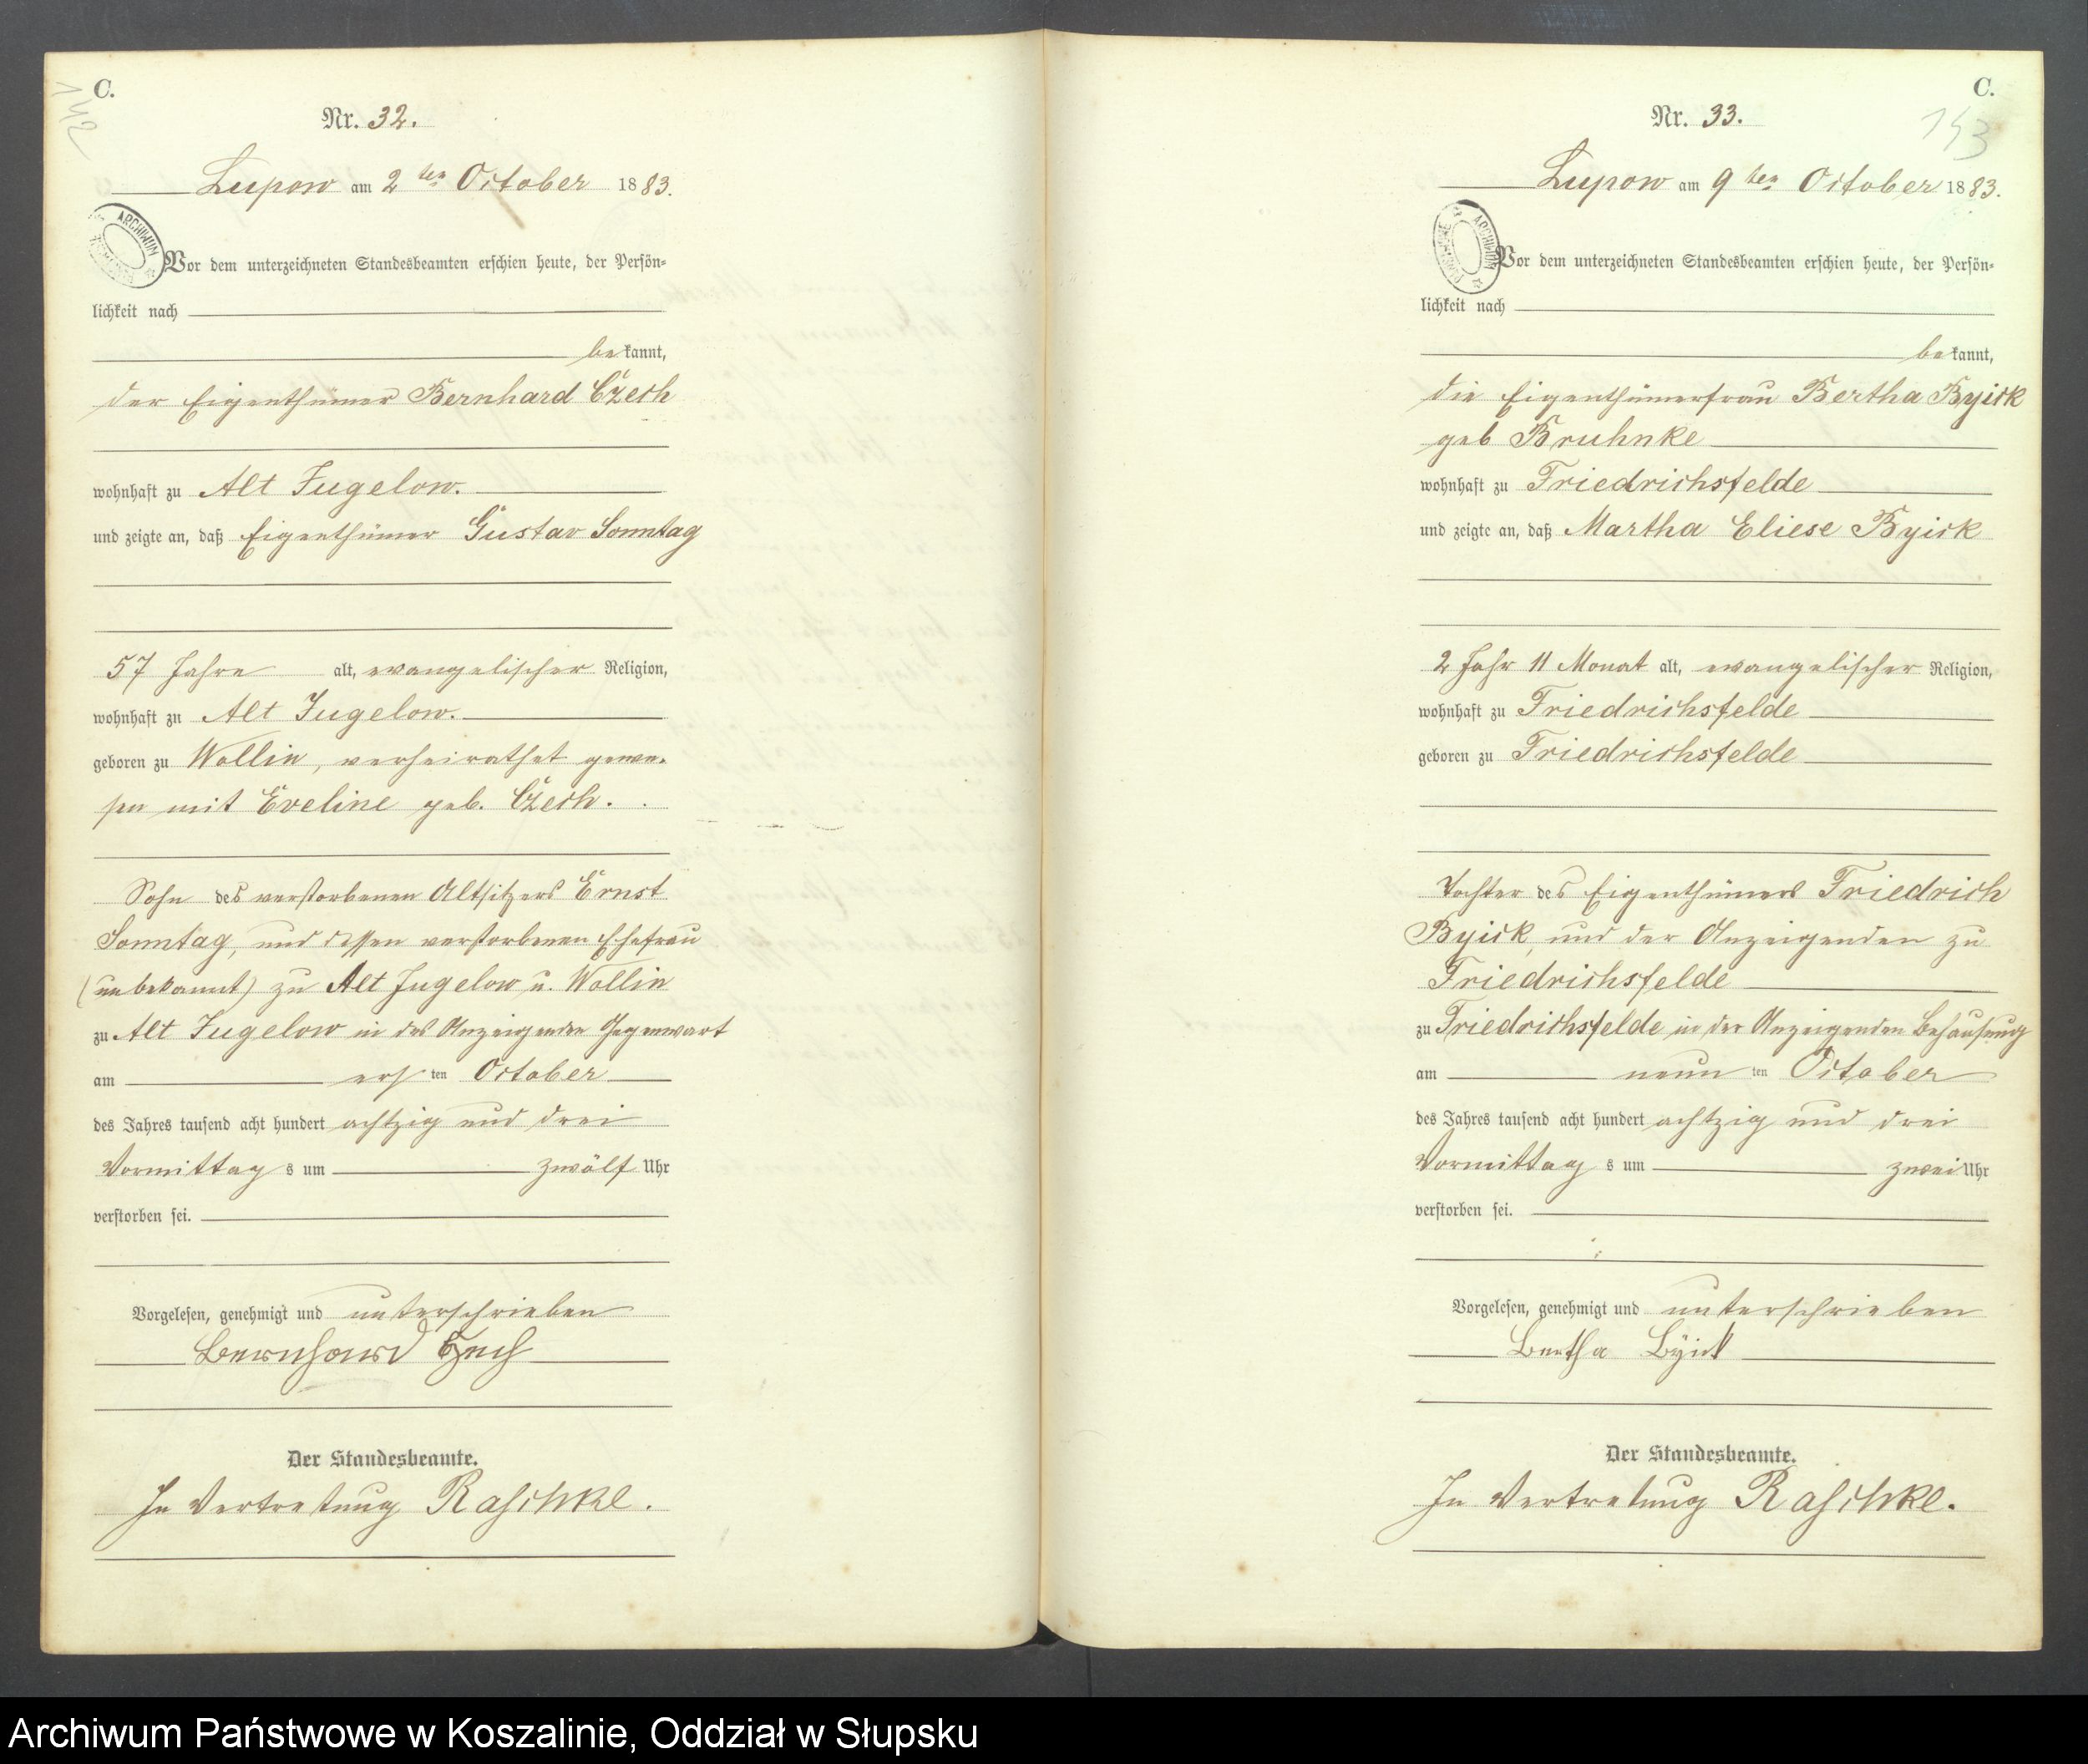 C.
142
Nr. 32.
Lupow am 2ten October 1883.
ARCHIWUM
Vor dem unterzeichneten Standesbeamten erschien heute, der Persön-
lichkeit nach
bekannt,
der Eigenthümer Bernhard Czech
wohnhaft zu Alt Jugelow.
und zeigte an, daß Eigenthümer Gustav Sonntag
57 Jahre alt, evangelischer Religion,
wohnhaft zu Alt Jugelow.
geboren zu Wollin, verheirathet gewe-
sen mit Eveline geb. Czech.
Sohn des verstorbenen Altsitzers Ernst
Sonntag, und dessen verstorbenen Ehefrau
(unbekannt) zu Alt Jugelow u. Wollin
zu Alt Jugelow in des Anzeigenden Gegenwart
am ersten October
des Jahres tausend acht hundert achtzig und drei
Vormittags um zwölf Uhr
verstorben sei.
Vorgelesen, genehmigt und unterschrieben
Bernhard Czech
Der Standesbeamte.
In Vertretung Raschke.
C.
143
Nr. 33.
Lupow am 9ten October 1883.
ARCHIWUM
Vor dem unterzeichneten Standesbeamten erschien heute, der Persön-
lichkeit nach
bekannt,
die Eigenthümerfrau Bertha Byick
geb Bruhnke
wohnhaft zu Friedrichsfelde
und zeigte an, daß Martha Eliese Byick
2 Jahr 11 Monat alt, evangelischer Religion,
wohnhaft zu Friedrichsfelde
geboren zu Friedrichsfelde
Tochter des Eigenthümers Friedrich
Byick, und der Anzeigenden zu
Friedrichsfelde
zu Friedrichsfelde in der Anzeigenden Behausung
am neunten October
des Jahres tausend acht hundert achtzig und drei
Vormittags um zwei Uhr
verstorben sei.
Vorgelesen, genehmigt und unterschrieben
Bertha Byick
Der Standesbeamte.
In Vertretung Raschke.
Archiwum Państwowe w Koszalinie, Oddział w Słupsku